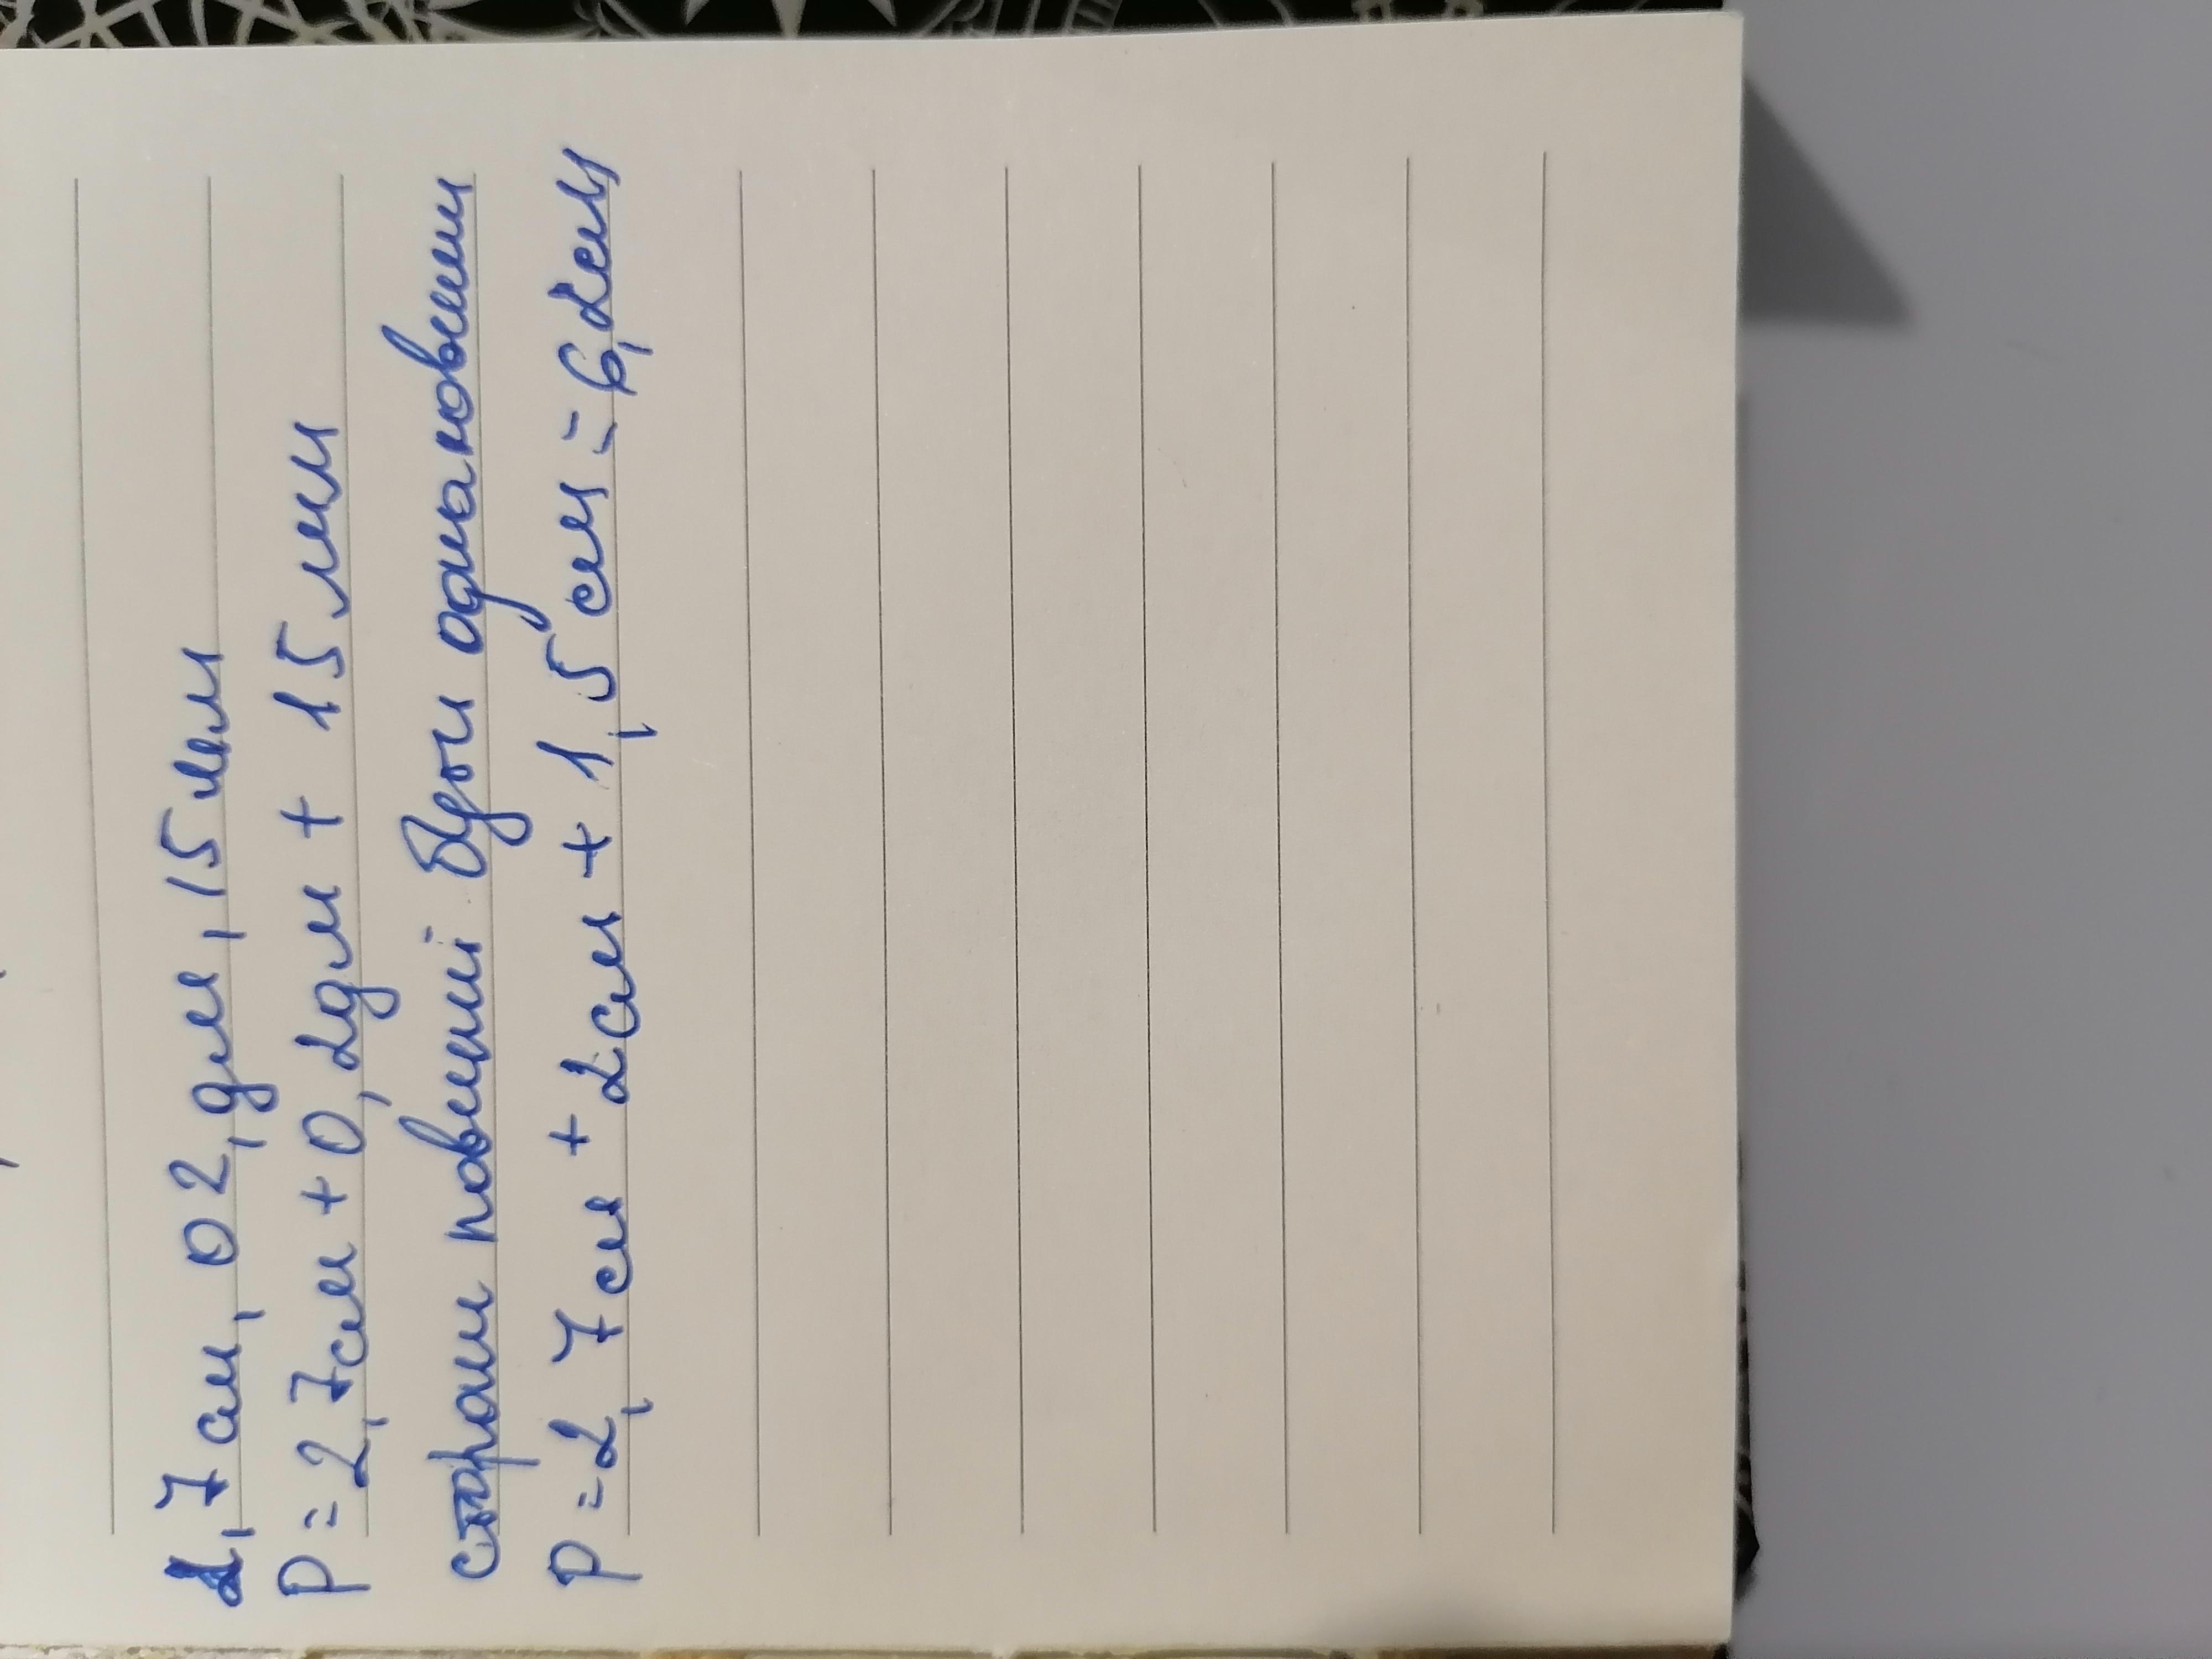 2,7 см, 02, дм, 15 мм
P = 2,7см + 0,2дм + 15 мм
сторони повинні бути однаковими
P = 2,7 см + 2см + 1,5 см = 6,2см